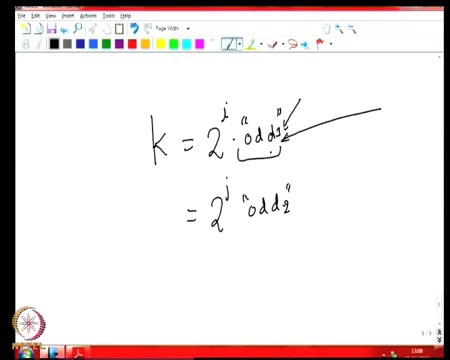 File Edit View Insert Actions Tools Help
Page Width
k = 2^i · "odd1"
= 2^j "odd2"
NPTEL
13:08